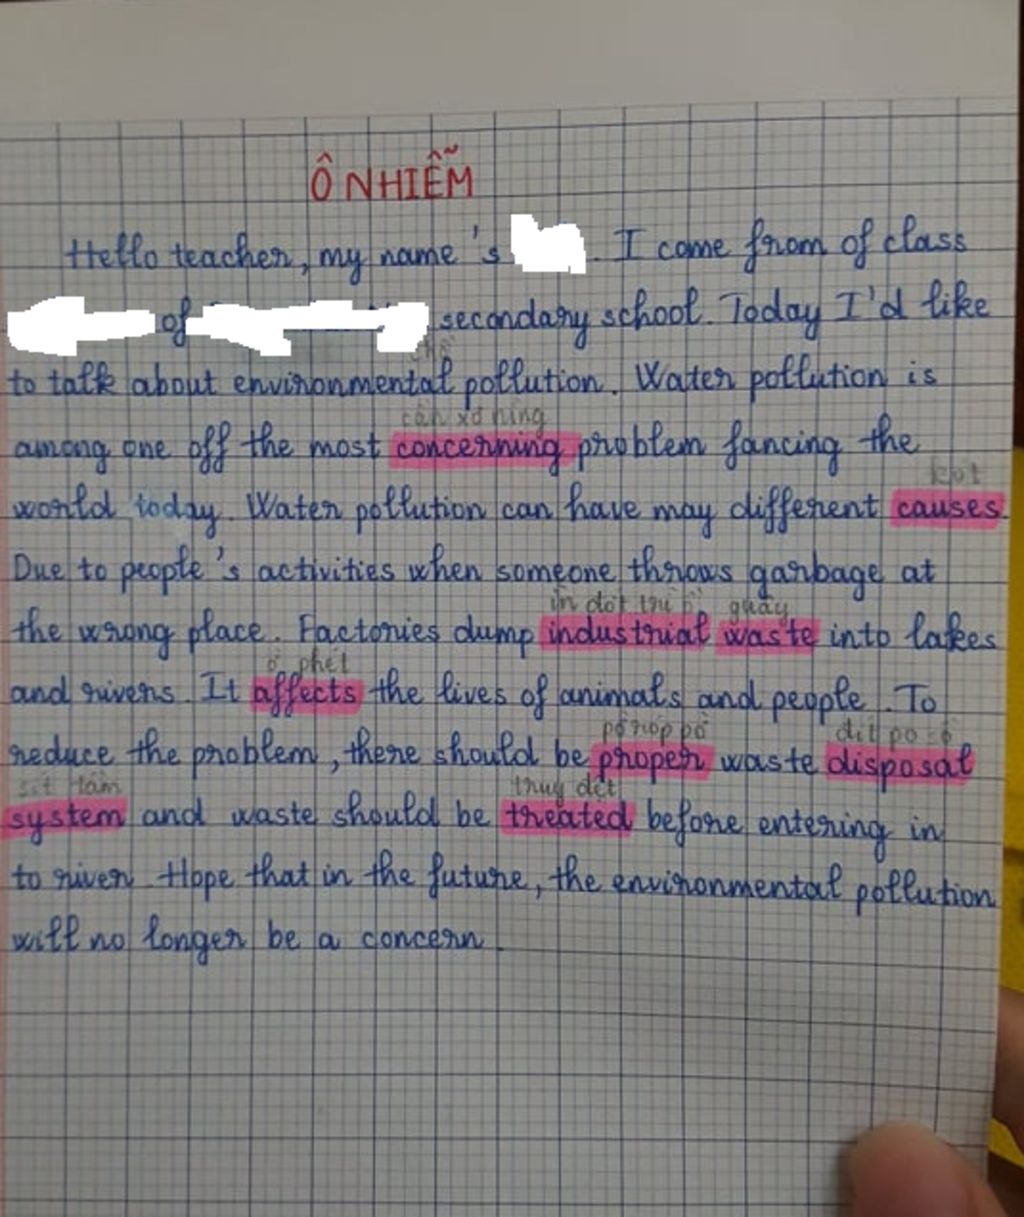 Ô NHIỄM
Hello teacher, my name 's . I come from of class
of secondary school. Today I'd like
to talk about environmental pollution. Water pollution is
cần xơ ning
among one off the most concerning problem fancing the
kót
world today. Water pollution can have may different causes.
Due to people's activities when someone throws garbage at
in dớt trù quây
the wrong place. Factories dump industrial waste into lakes
ơ phét
and rivers. It affects the lives of animals and people. To
pờ róp pờ dít po
reduce the problem, there should be proper waste disposal
sít tầm truy dệt
system and waste should be treated before entering in
to river. Hope that in the future, the environmental pollution
will no longer be a concern.